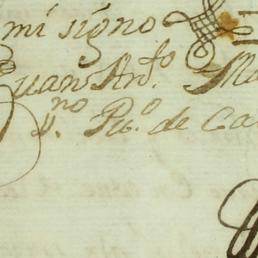 mi signo
Juan Ant.º Ma
S.no Pu.º de Ca